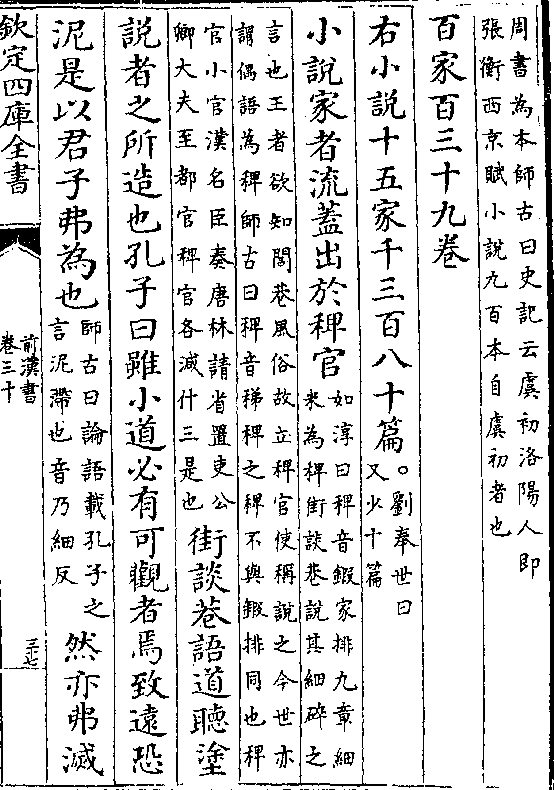 周書為本師古曰史記云虞初洛陽人即
張衡西京賦小說九百本自虞初者也
百家百三十九卷
右小說十五家千三百八十篇。劉奉世曰
又少十篇
小說家者流蓋出於稗官如淳曰稗音鍜家排九章細
米為稗街談巷說其細碎之
言也王者欲知閭巷風俗故立稗官使稱說之今世亦
謂偶語為稗師古曰稗音稊稗之稗不與鍜排同也稗
官小官漢名臣奏唐林請省置吏公
卿大夫至都官稗官各減什三是也街談巷語道聽塗
說者之所造也孔子曰雖小道必有可觀者焉致遠恐
泥是以君子弗為也師古曰論語載孔子之
言泥滯也音乃細反然亦弗滅
欽定四庫全書
前漢書
卷三十
三十七